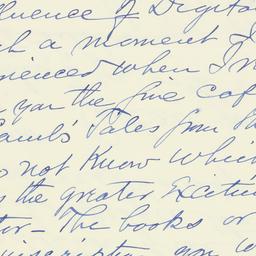 fluence of Digita
ch a moment I
rienced when I r
n you the fine cop
Lamb's Tales from Sh
o not know which
s the greater excitem
tor - The books or
inscription you w